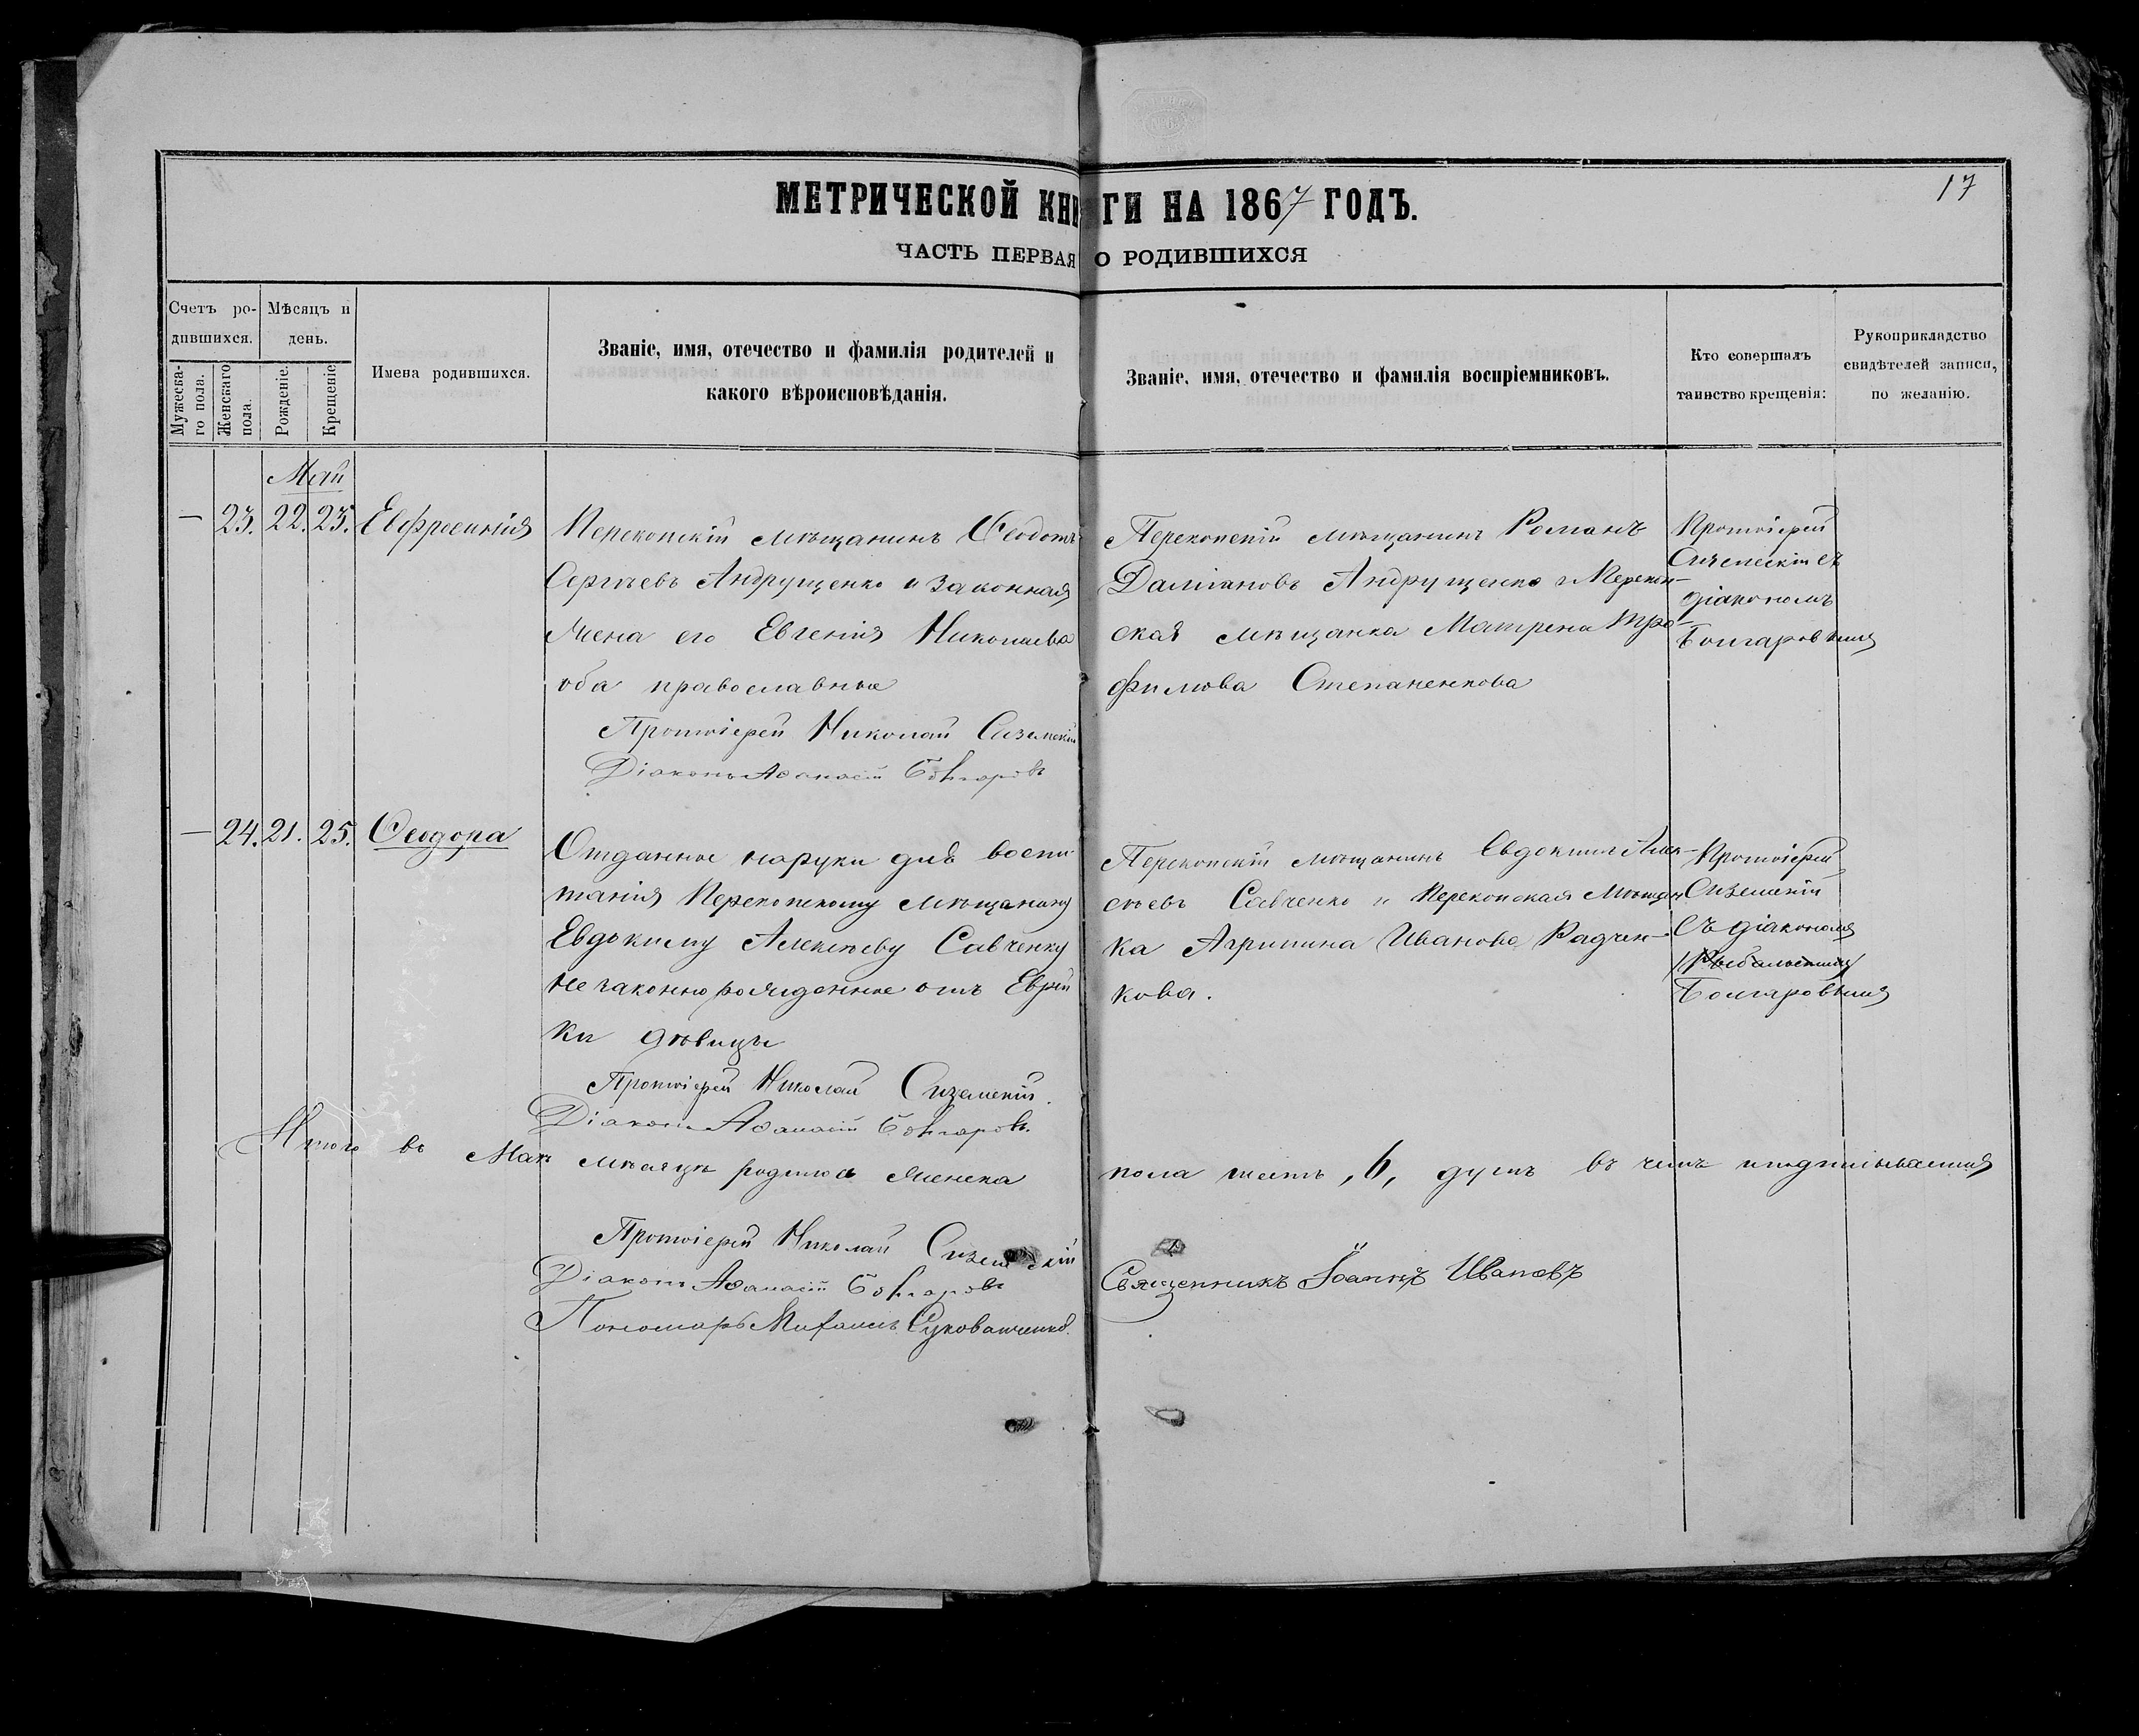 17
МЕТРИЧЕСКОЙ КНИГИ НА 1867 ГОДЪ.
ЧАСТЬ ПЕРВАЯ О РОДИВШИХСЯ
Счетъ родившихся.
Мужескаго пола.
Женскаго пола.
Мѣсяцъ и день.
Рожденіе.
Крещеніе.
Имена родившихся.
Званіе, имя, отечество и фамилія родителей и
какого вѣроисповѣданія.
Званіе, имя, отечество и фамилія воспріемниковъ.
Кто совершалъ
таинство крещенія:
Рукоприкладство
свидѣтелей записи,
по желанію.
Май
— 23. 22. 23. Евфросинія
Перекопскій мѣщанинъ Ѳеодотъ
Сергѣевъ Андрущенко и законная
жена его Евгенія Николаева
оба православные
Протоіерей Николай Сиземскій
Діаконъ Аѳанасій Болгаровъ
Перекопскій мѣщанинъ Романъ
Даміановъ Андрущенко и Перекоп-
ская мѣщанка Матрена Тро-
фимова Степаненкова
Протоіерей
Сиземскій съ
діакономъ
Болгаровымъ
— 24. 21. 25. Ѳеодора
Отданное наруки для воспи-
танія Перекопскому мѣщанину
Евдокиму Алексѣеву Савченку
незаконно рожденное отъ Еврей
ки дѣвицы
Протоіерей Николай Сиземскій.
Діаконъ Аѳанасій Болгаровъ.
Перекопскій мѣщанинъ Евдокимъ Алек-
сѣевъ Савченко и Перекопская мѣщан
ка Агрипина Иванова Радчен-
кова.
Протоіерей
Сиземскій
Съ діакономъ
Болгаровымъ
Итого въ Маѣ мѣсяцѣ родилось женска пола шесть, 6, душъ въ чемъ и подписываемся
Протоіерей Николай Сиземскій
Діаконъ Аѳанасій Болгаровъ
Пономарь Михаилъ
Священникъ Іоаннъ Ивановъ